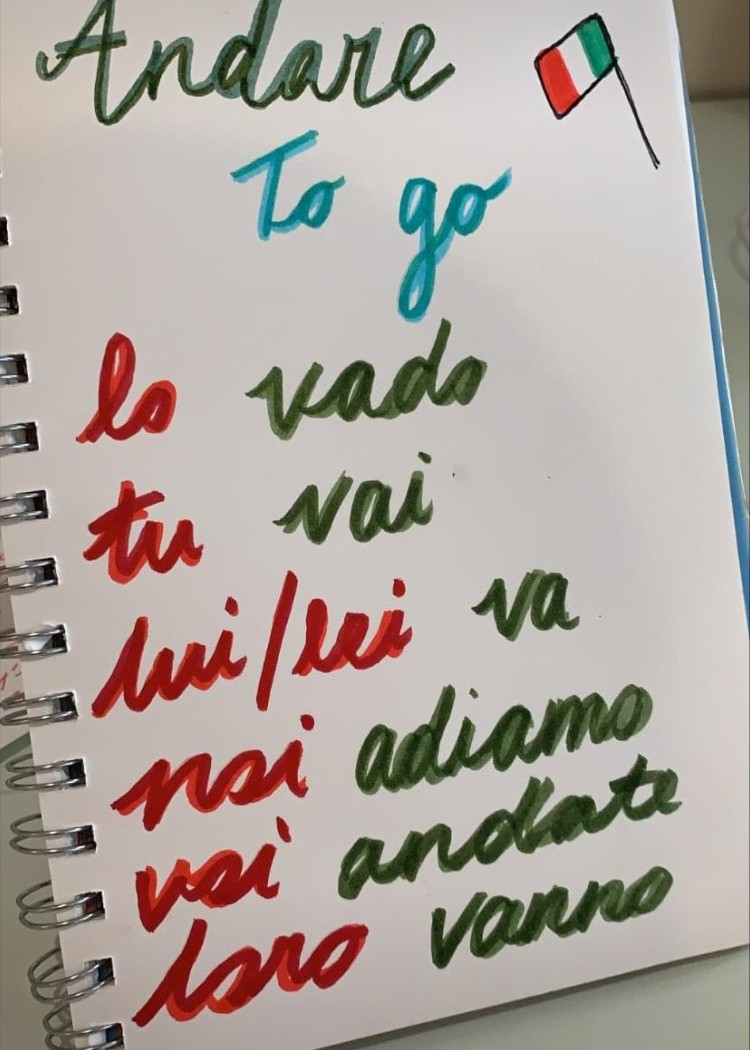 Andare
To go
Io vado
tu vai
lui/lei va
noi adiamo
voi andate
loro vanno